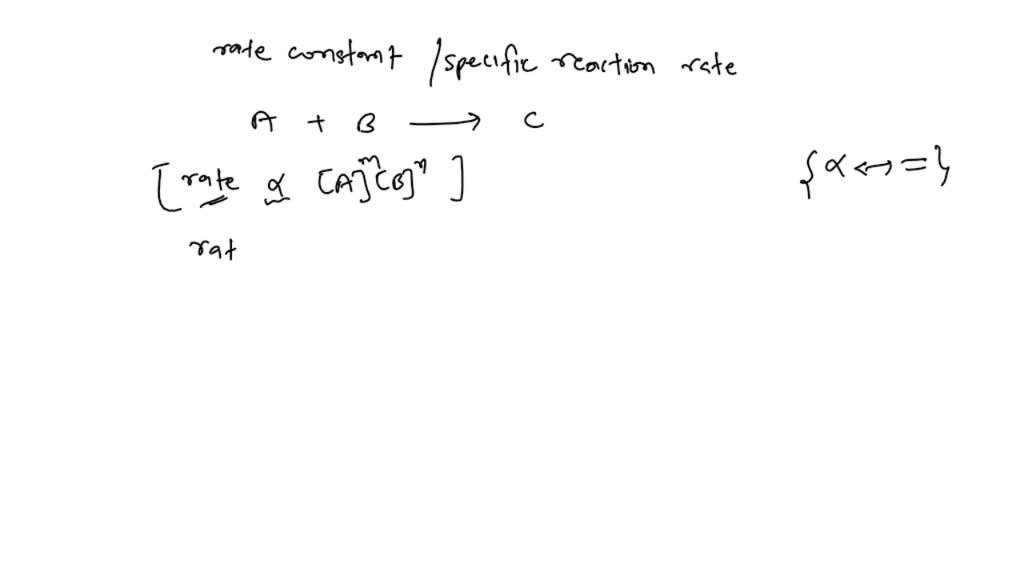 rate constant / specific reaction rate
A + B ⟶ C
[ rate ∝ [A]^m [B]^n ] {∝ ↔ =}
rat